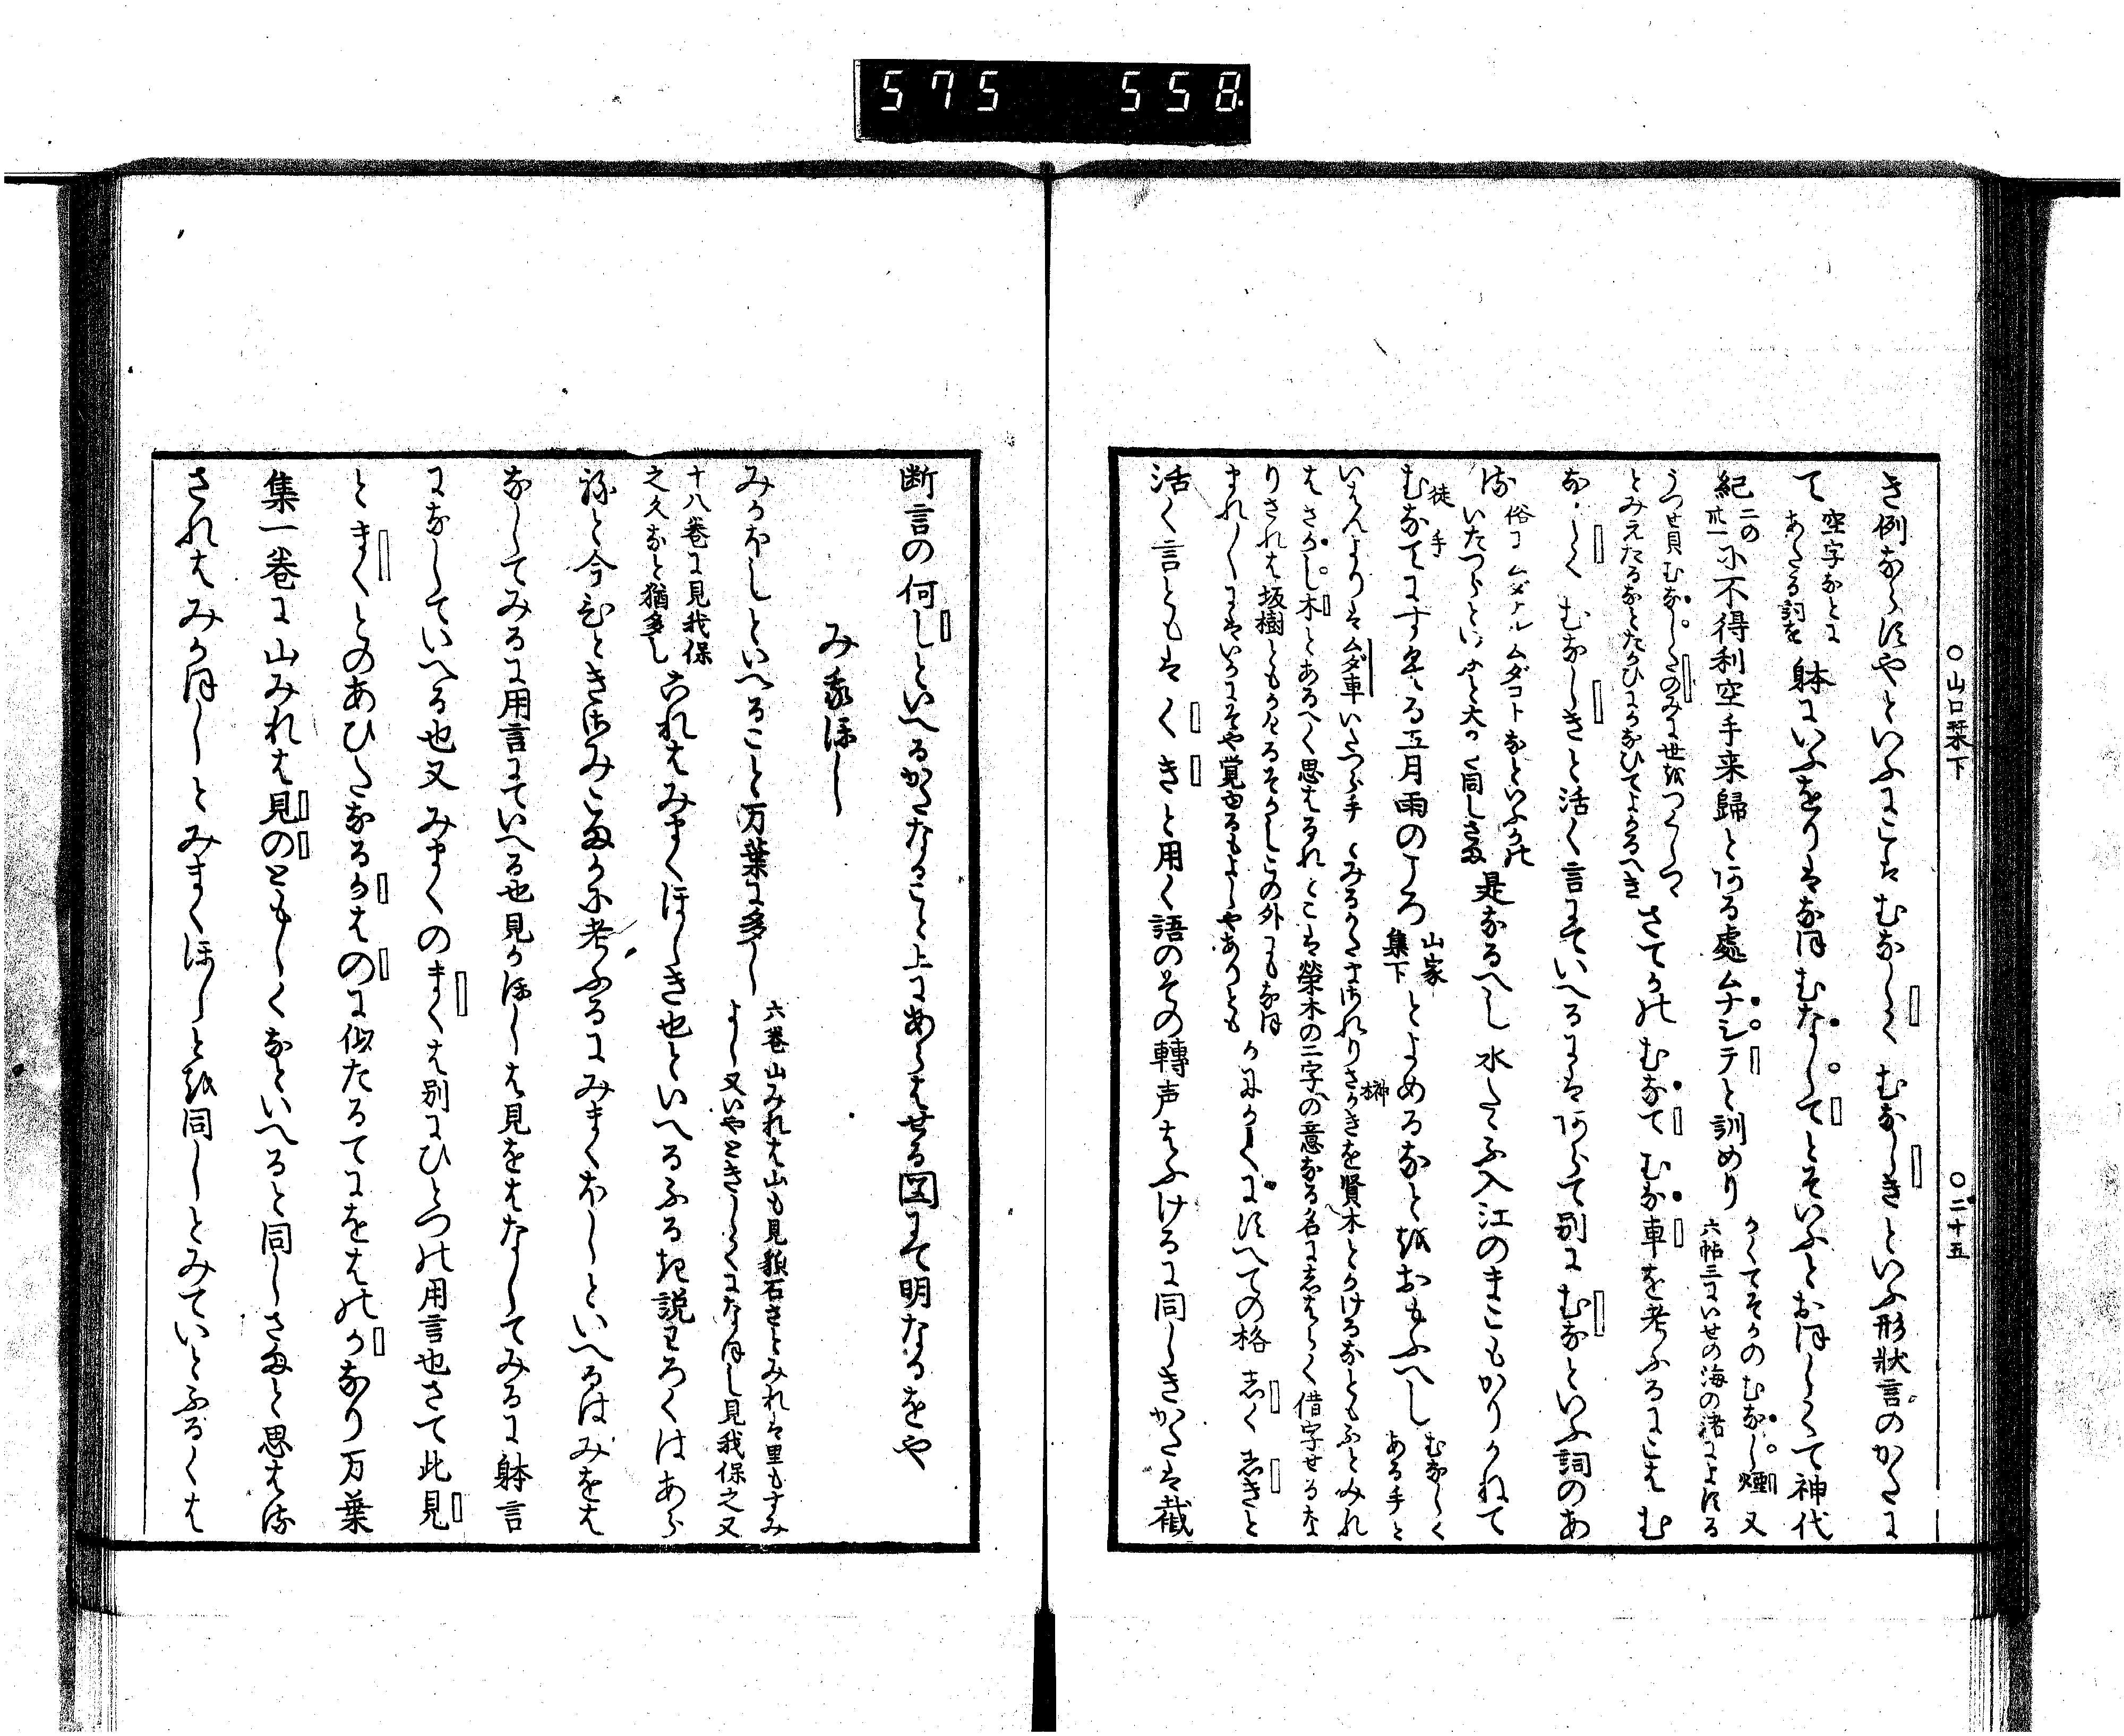 575 558
○山口栞下 ○二十五
き例ならすやといふにこはむなしくむなしきといふ形状言のかたに
て
空字なとに
あたる詞を
躰にいふをりはなほむなしてとそいふとおほしくて神代
紀
二の
廿一
に不得利空手来歸とある處ムナシテと訓めり
かくてそかのむなし煙又
六帖三にいせの海の渚によする
うつせ貝むなしたのみに世をつくしつ
とみえたるなとたかひにかなひてよかるへき
さてかのむなてむな車を考ふるにこはむ
なしくむなしきと活く言にていへるにはあらて別にむなといふ詞のあ
る
俗にムダナルムダコトなといふかの
いたつらといふと大かた同しさま
是なるへし水たたふ入江のまこもかりかねて
むなてにすくる五月雨のころ
徒手
山家
集下
とよめるなとをおもふへし
むなしく
ある手と
いはんよりはムダ車いたつら手とみるかたまされりさかきを賢木とかけるなともふとみれ
榊
はさかし木とあるへく思はるれとこは榮木の二字の意なる名にしはらく借字せるな
りされは坂樹ともかけるそかしこの外にもなほ
まれにはいかにそや覚ゆるもよしやありとも
かにかくにすへての格しくしきと
活く言ともはくきと用く語のその轉声をふけるに同しきかたは截
断言の何しといへるかたなること上にあらはせる図にて明なるをや
み我ほし
みかほしといへること万葉に多し
六巻山みれは山も見貌石さとみれは里もすみ
よし又いやときしくになほし見我保之又
十八巻に見我保
之久なと猶多し
六れはみまくほしき也といへるふるき説わろくはあら
ねと今ひときはみこまかに考ふるにみまくほしといへるはみをは
なしてみるに用言にていへる也見かほしは見をはなしてみるに躰言
になしていへる也又みまくのまくは別にひとつの用言也さて此見
とまくとのあひたなるかはのに似たるてにをはのかなり万葉
集一巻に山みれは見のともしくなといへると同しさまと思はる
されはみかほしとみまくほしとを同しとみていとふるくは